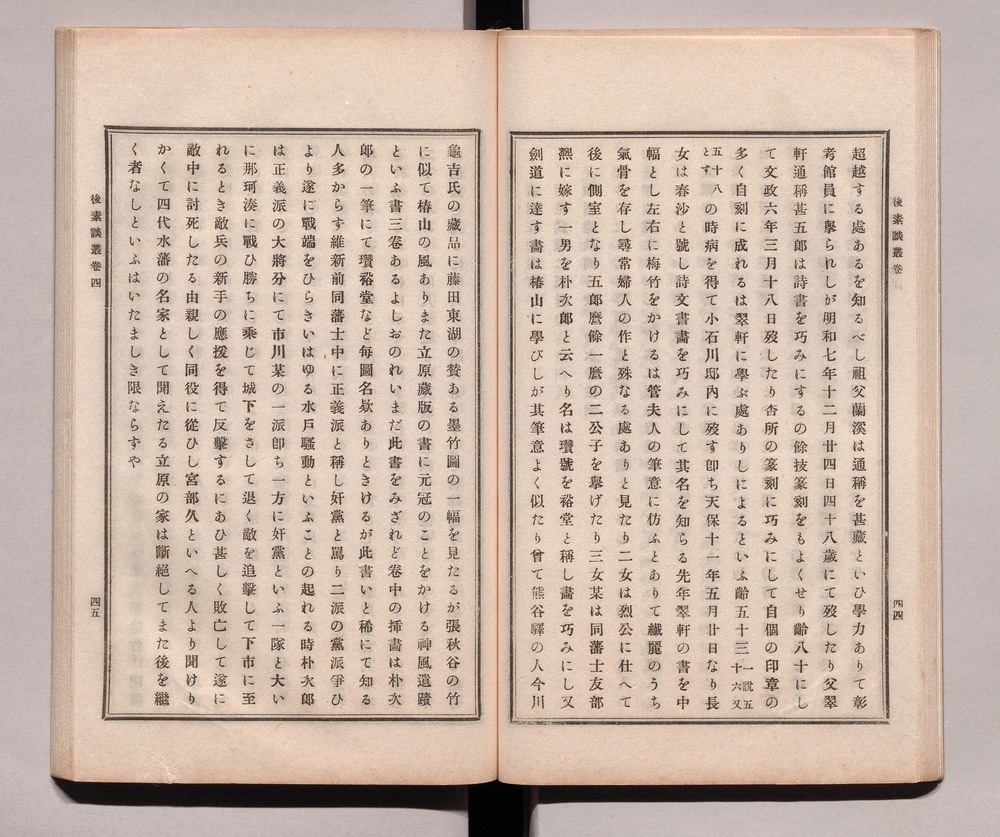 後素談叢卷
超越する處あるを知るべし祖父蘭溪は通稱を甚藏といひ學力ありて彰
考館員に擧られしが明和七年十二月廿四日四十八歲にて歿したり父翠
軒通稱甚五郎は詩書を巧みにするの餘技篆刻をもよくせり齡八十にし
て文政六年三月十八日歿したり杏所の篆刻に巧みにして自個の印章の
多く自刻に成れるは翠軒に學ぶ處ありしによるといふ齡五十三一說五十六又
五十八とすの時病を得て小石川邸內に歿す卽ち天保十一年五月廿日なり長
女は春沙と號し詩文書畫を巧みにして其名を知らる先年翠軒の書を中
幅とし左右に梅竹をかけるは管夫人の筆意に仿ふとありて纎麗のうち
氣骨を存し尋常婦人の作と殊なる處ありと見たり二女は烈公に仕へて
後に側室となり五郎麿餘一麿の二公子を擧げたり三女某は同藩士友部
熈に嫁す一男を朴次郎と云へり名は瓚號を𧙥堂と稱し畫を巧みにし又
劍道に達す書は椿山に學びしが其筆意よく似たり曾て熊谷驛の人今川
四四
龜吉氏の藏品に藤田東湖の贊ある墨竹圖の一幅を見たるが張秋谷の竹
に似て椿山の風ありまた立原藏版の書に元冠のことをかける神風遺蹟
といふ書三卷あるよしおのれいまだ此書をみざれど卷中の揷畵は朴次
郎の一筆にて瓚𧙥堂など每圖名欵ありときけるが此書いと稀にて知る
人多からす維新前同藩士中に正義派と稱し奸黨と罵り二派の黨派爭ひ
より遂に戰端をひらきいはゆる水戶騷動といふことの起れる時朴次郎
は正義派の大將分にて市川某の一派卽ち一方に奸黨といふ一隊と大い
に那珂湊に戰ひ勝ちに乘じて城下をさして退く敵を追擊して下市に至
れるとき敵兵の新手の應援を得て反擊するにあひ甚しく敗亡して遂に
敵中に討死したる由親しく同役に從ひし宮部久といへる人より聞けり
かくて四代水藩の名家として聞えたる立原の家は斷絕してまた後を繼
く者なしといふはいたましき限ならすや
後素談叢卷四
四五